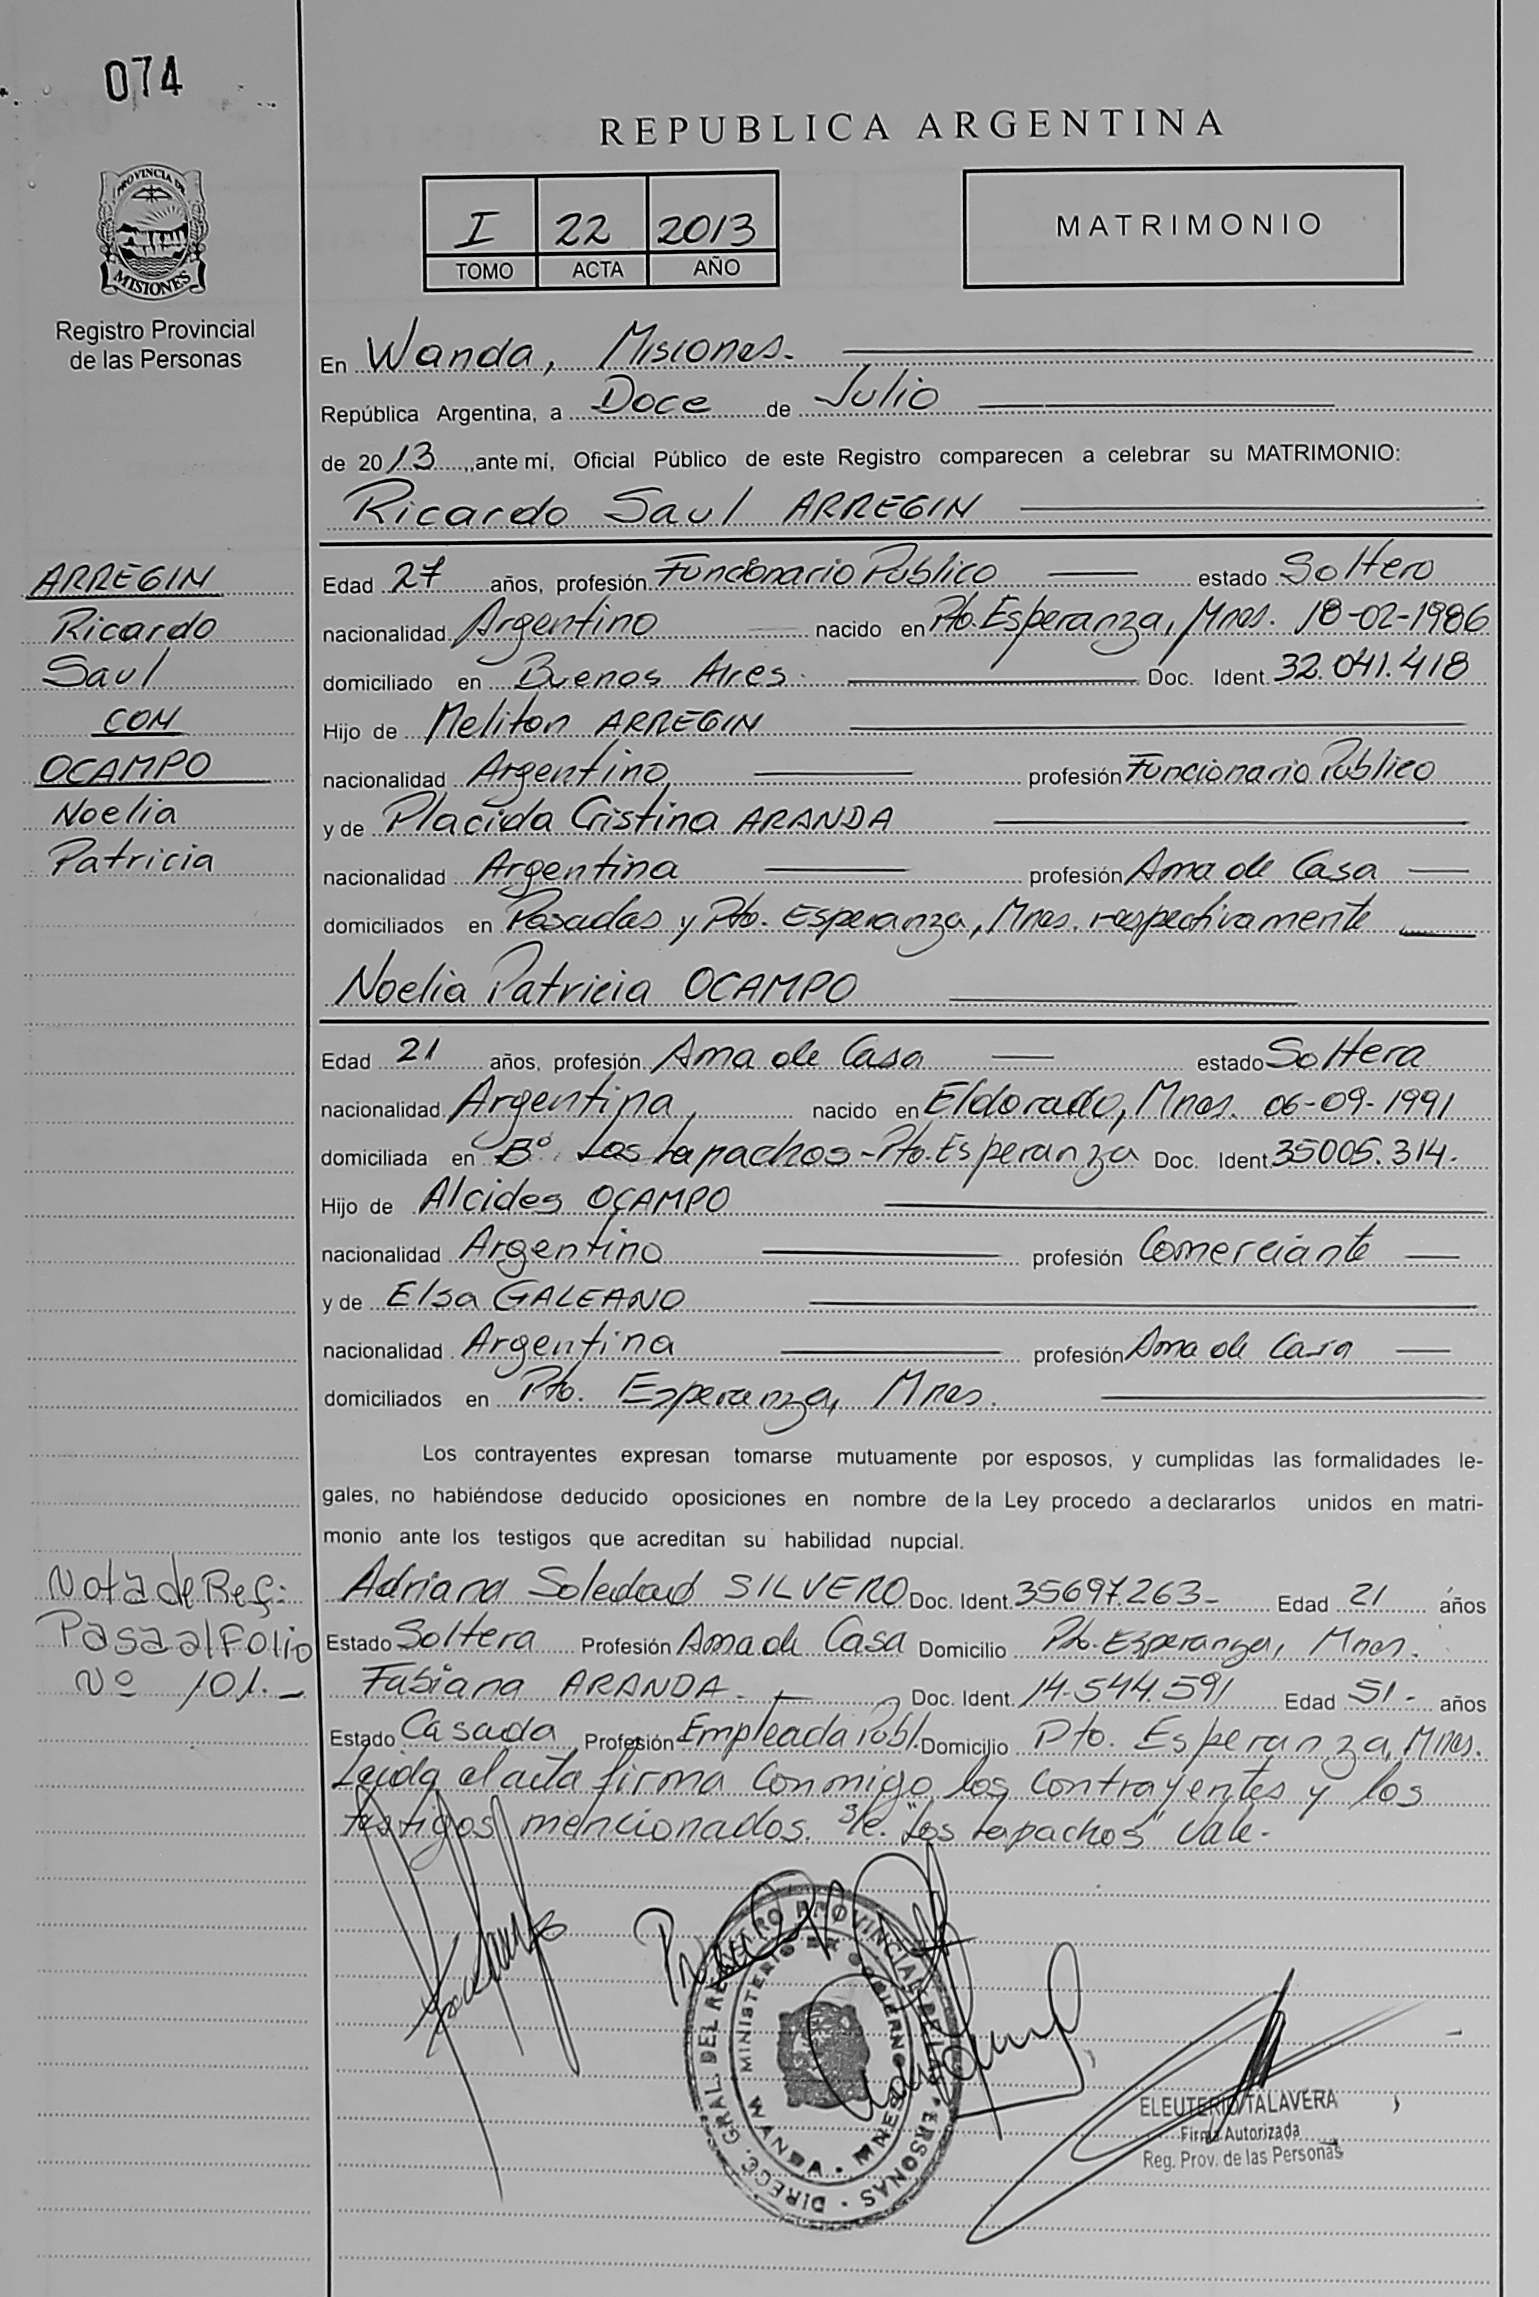 074
REPUBLICA ARGENTINA
PROVINCIA DE
MISIONES
Registro Provincial
de las Personas
I 22 2013
TOMO ACTA AÑO
MATRIMONIO
En Wanda, Misiones.
República Argentina, a Doce de Julio
de 2013, ante mí, Oficial Público de este Registro comparecen a celebrar su MATRIMONIO:
Ricardo Saul ARREGIN
ARREGIN
Ricardo
Saul
CON
OCAMPO
Noelia
Patricia
Edad 27 años, profesión Funcionario Público estado Soltero
nacionalidad Argentino nacido en Pto. Esperanza, Mnes. 18-02-1986
domiciliado en Buenos Aires. Doc. Ident. 32.041.418
Hijo de Meliton ARREGIN
nacionalidad Argentino profesión Funcionario Público
y de Placida Cristina ARANDA
nacionalidad Argentina profesión Ama de Casa
domiciliados en Posadas y Pto. Esperanza, Mnes. respectivamente
Noelia Patricia OCAMPO
Edad 21 años, profesión Ama de Casa estado Soltera
nacionalidad Argentina, nacido en Eldorado, Mnes. 06-09-1991
domiciliada en B° Los lapachos - Pto. Esperanza Doc. Ident. 35005.314.
Hijo de Alcides OCAMPO
nacionalidad Argentino profesión Comerciante
y de Elsa GALEANO
nacionalidad Argentina profesión Ama de Casa
domiciliados en Pto. Esperanza, Mnes.
Los contrayentes expresan tomarse mutuamente por esposos, y cumplidas las formalidades le-
gales, no habiéndose deducido oposiciones en nombre de la Ley procedo a declararlos unidos en matri-
monio ante los testigos que acreditan su habilidad nupcial.
Nota de Ref:
Pasa al Folio
Nº 101.-
Adriana Soledad SILVERO Doc. Ident. 35697.263- Edad 21 años
Estado Soltera Profesión Ama de Casa Domicilio Pto. Esperanza, Mnes.
Fabiana ARANDA.- Doc. Ident. 14.544.591 Edad 51.- años
Estado Casada Profesión Empleada Públ. Domicilio Pto. Esperanza, Mnes.
Leida el acta firma conmigo los contrayentes y los
testigos mencionados. s/e. "Los lapachos" Vale.-
DIRECC. GRAL. DEL REGISTRO PROVINCIAL DE LAS PERSONAS
MINISTERIO DE GOBIERNO
WANDA - MNES
ELEUTERIO TALAVERA
Firma Autorizada
Reg. Prov. de las Personas